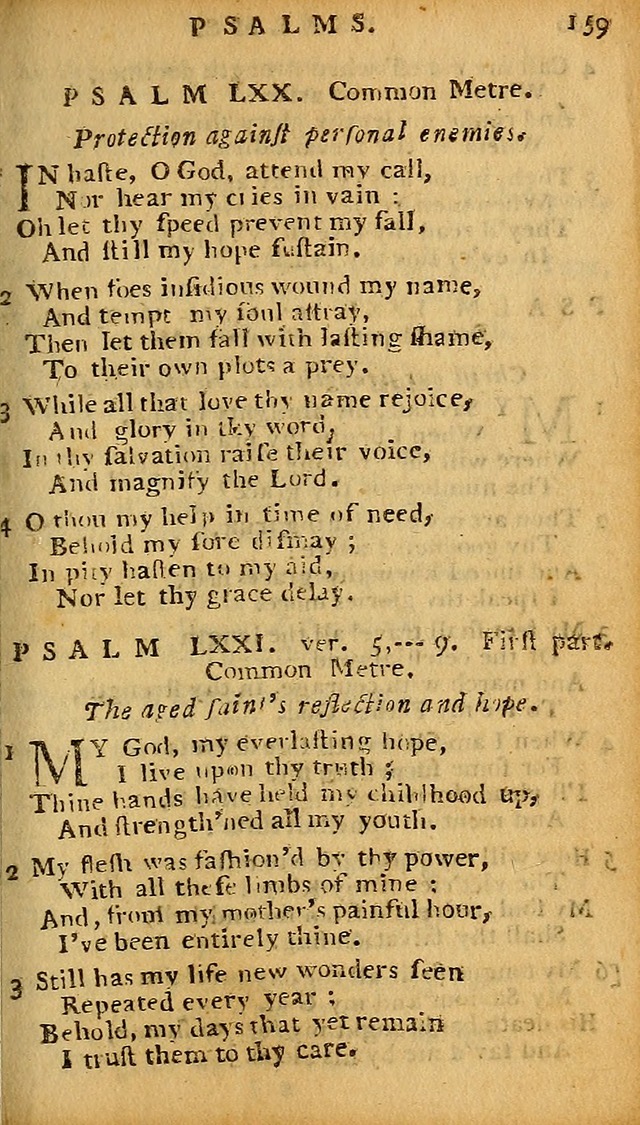 PSALMS. 159
PSALM LXX. Common Metre.
Protection againſt perſonal enemies.
IN haſte, O God, attend my call,
Nor hear my cries in vain :
Oh let thy ſpeed prevent my fall,
And ſtill my hope ſuſtain.
2 When foes inſidious wound my name,
And tempt my ſoul aſtray,
Then let them fall with laſting ſhame,
To their own plots a prey.
3 While all that love thy name rejoice,
And glory in thy word,
In thy ſalvation raiſe their voice,
And magnify the Lord.
4 O thou my help in time of need,
Behold my ſore diſmay ;
In pity haſten to my aid,
Nor let thy grace delay.
PSALM LXXI. ver. 5,--- 9. Firſt part.
Common Metre.
The aged ſaint's reflection and hope.
1 MY God, my everlaſting hope,
I live upon thy truth ;
Thine hands have held my childhood up,
And ſtrength'ned all my youth.
2 My fleſh was faſhion'd by thy power,
With all theſe limbs of mine ;
And, from my mother's painful hour,
I've been entirely thine.
3 Still has my life new wonders ſeen
Repeated every year ;
Behold, my days that yet remain
I truſt them to thy care.